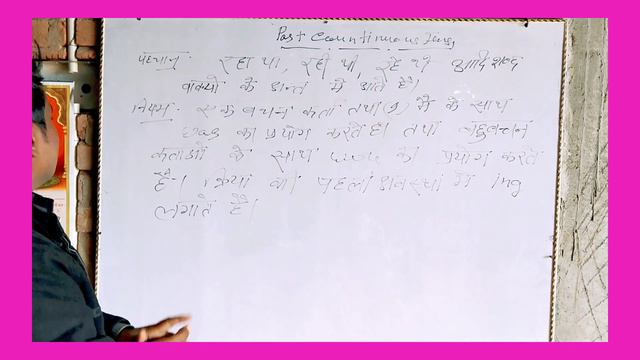 Past Countinuous Tense
पहचान:- रहा था, रही थी, रहे थे आदि शब्द
वाक्यों के अन्त में आते हैं।
नियम:- एक वचन कर्ता तथा (I) मैं के साथ
was का प्रयोग करते है। तथा बहुवचन
कर्ताओं के साथ were का प्रयोग करते
है। क्रिया की पहली अवस्था में ing
लगाते है।